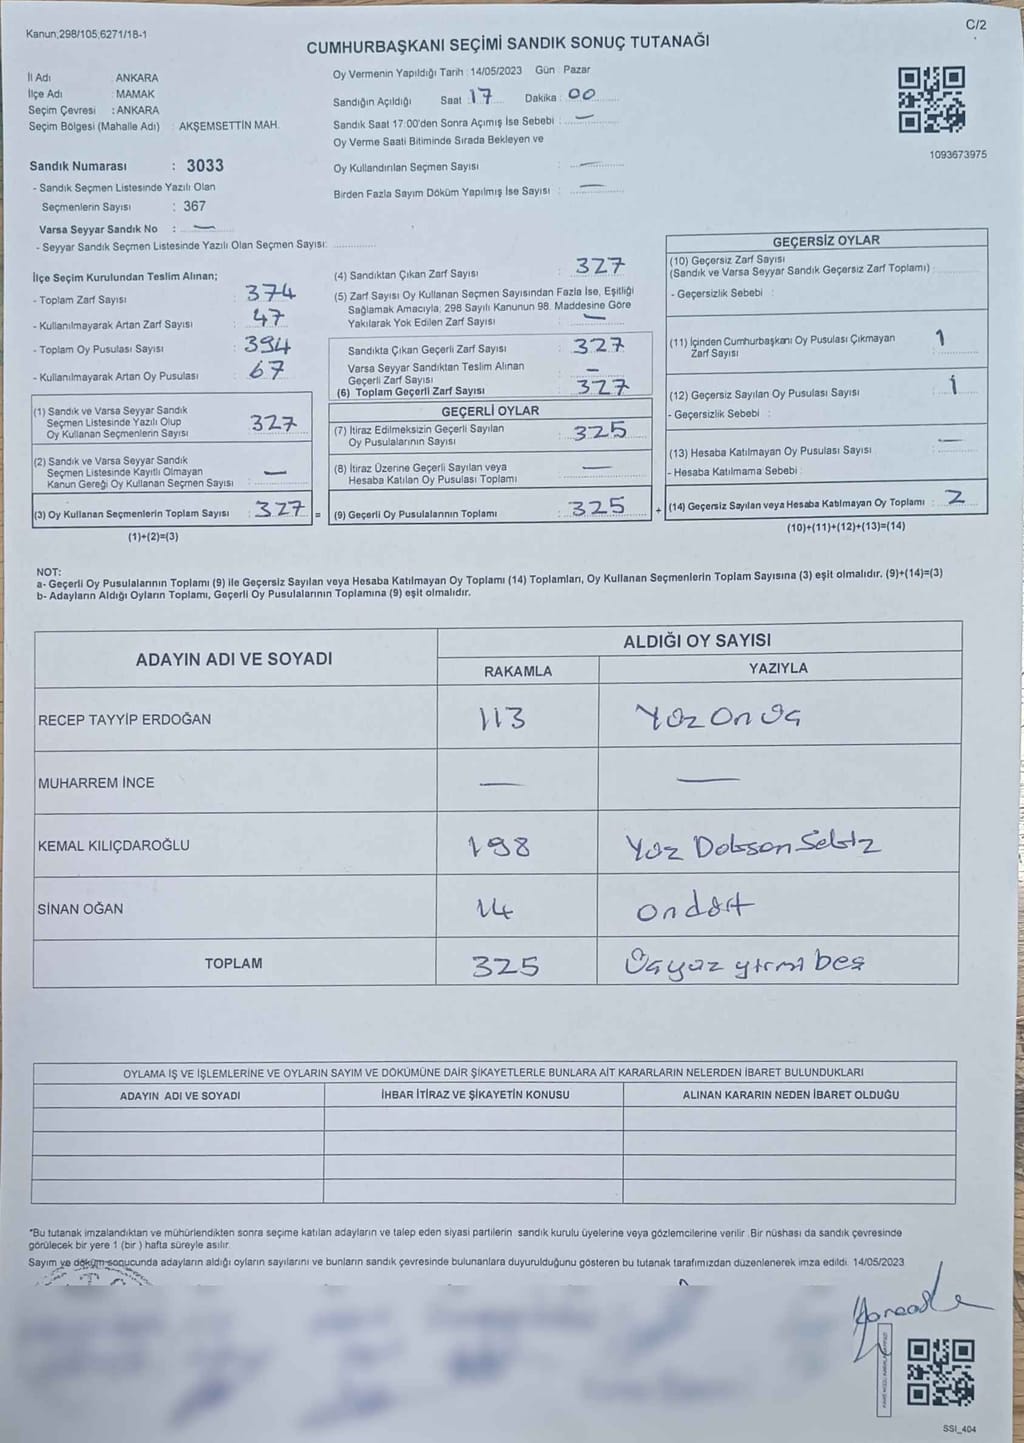 Kanun,298/105,6271/18-1
C/2
CUMHURBAŞKANI SEÇİMİ SANDIK SONUÇ TUTANAĞI
İl Adı : ANKARA
İlçe Adı : MAMAK
Seçim Çevresi : ANKARA
Seçim Bölgesi (Mahalle Adı) : AKŞEMSETTİN MAH.
Sandık Numarası : 3033
- Sandık Seçmen Listesinde Yazılı Olan
Seçmenlerin Sayısı : 367
Varsa Seyyar Sandık No : —
- Seyyar Sandık Seçmen Listesinde Yazılı Olan Seçmen Sayısı:
Oy Vermenin Yapıldığı Tarih : 14/05/2023 Gün : Pazar
Sandığın Açıldığı Saat : 17 Dakika : 00
Sandık Saat 17:00'den Sonra Açımış İse Sebebi : —
Oy Verme Saati Bitiminde Sırada Bekleyen ve
Oy Kullandırılan Seçmen Sayısı : —
Birden Fazla Sayım Döküm Yapılmış İse Sayısı : —
1093673975
İlçe Seçim Kurulundan Teslim Alınan;
- Toplam Zarf Sayısı : 374
- Kullanılmayarak Artan Zarf Sayısı : 47
- Toplam Oy Pusulası Sayısı : 394
- Kullanılmayarak Artan Oy Pusulası : 67
(1) Sandık ve Varsa Seyyar Sandık
Seçmen Listesinde Yazılı Olup
Oy Kullanan Seçmenlerin Sayısı : 327
(2) Sandık ve Varsa Seyyar Sandık
Seçmen Listesinde Kayıtlı Olmayan
Kanun Gereği Oy Kullanan Seçmen Sayısı : —
(3) Oy Kullanan Seçmenlerin Toplam Sayısı : 327 =
(1)+(2)=(3)
(4) Sandıktan Çıkan Zarf Sayısı : 327
(5) Zarf Sayısı Oy Kullanan Seçmen Sayısından Fazla İse, Eşitliği
Sağlamak Amacıyla, 298 Sayılı Kanunun 98. Maddesine Göre
Yakılarak Yok Edilen Zarf Sayısı : —
Sandıkta Çıkan Geçerli Zarf Sayısı : 327
Varsa Seyyar Sandıktan Teslim Alınan
Geçerli Zarf Sayısı : —
(6) Toplam Geçerli Zarf Sayısı : 327
GEÇERLİ OYLAR
(7) İtiraz Edilmeksizin Geçerli Sayılan
Oy Pusulalarının Sayısı : 325
(8) İtiraz Üzerine Geçerli Sayılan veya
Hesaba Katılan Oy Pusulası Toplamı : —
(9) Geçerli Oy Pusulalarının Toplamı : 325 +
GEÇERSİZ OYLAR
(10) Geçersiz Zarf Sayısı
(Sandık ve Varsa Seyyar Sandık Geçersiz Zarf Toplamı) :
- Geçersizlik Sebebi :
(11) İçinden Cumhurbaşkanı Oy Pusulası Çıkmayan
Zarf Sayısı : 1
(12) Geçersiz Sayılan Oy Pusulası Sayısı : 1
- Geçersizlik Sebebi :
(13) Hesaba Katılmayan Oy Pusulası Sayısı : —
- Hesaba Katılmama Sebebi :
(14) Geçersiz Sayılan veya Hesaba Katılmayan Oy Toplamı : 2
(10)+(11)+(12)+(13)=(14)
NOT:
a- Geçerli Oy Pusulalarının Toplamı (9) ile Geçersiz Sayılan veya Hesaba Katılmayan Oy Toplamı (14) Toplamları, Oy Kullanan Seçmenlerin Toplam Sayısına (3) eşit olmalıdır. (9)+(14)=(3)
b- Adayların Aldığı Oyların Toplamı, Geçerli Oy Pusulalarının Toplamına (9) eşit olmalıdır.
ADAYIN ADI VE SOYADI ALDIĞI OY SAYISI
RAKAMLA YAZIYLA
RECEP TAYYİP ERDOĞAN 113 Yüz On Üç
MUHARREM İNCE — —
KEMAL KILIÇDAROĞLU 198 Yüz Doksan Sekiz
SİNAN OĞAN 14 On dört
TOPLAM 325 Üçyüz yirmi beş
OYLAMA İŞ VE İŞLEMLERİNE VE OYLARIN SAYIM VE DÖKÜMÜNE DAİR ŞİKAYETLERLE BUNLARA AİT KARARLARIN NELERDEN İBARET BULUNDUKLARI
ADAYIN ADI VE SOYADI İHBAR İTİRAZ VE ŞİKAYETİN KONUSU ALINAN KARARIN NEDEN İBARET OLDUĞU
*Bu tutanak imzalandıktan ve mühürlendikten sonra seçime katılan adayların ve talep eden siyasi partilerin sandık kurulu üyelerine veya gözlemcilerine verilir. Bir nüshası da sandık çevresinde
görülecek bir yere 1 (bir ) hafta süreyle asılır.
Sayım ve döküm sonucunda adayların aldığı oyların sayılarını ve bunların sandık çevresinde bulunanlara duyurulduğunu gösteren bu tutanak tarafımızdan düzenlenerek imza edildi. 14/05/2023
SSI_404